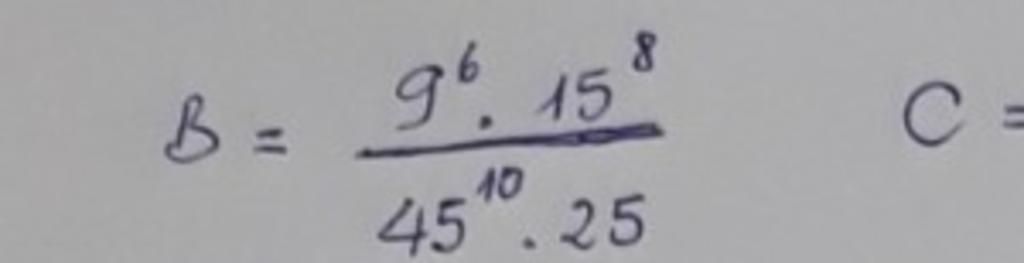 B = \frac{9^6 . 15^8}{45^{10} . 25} C =